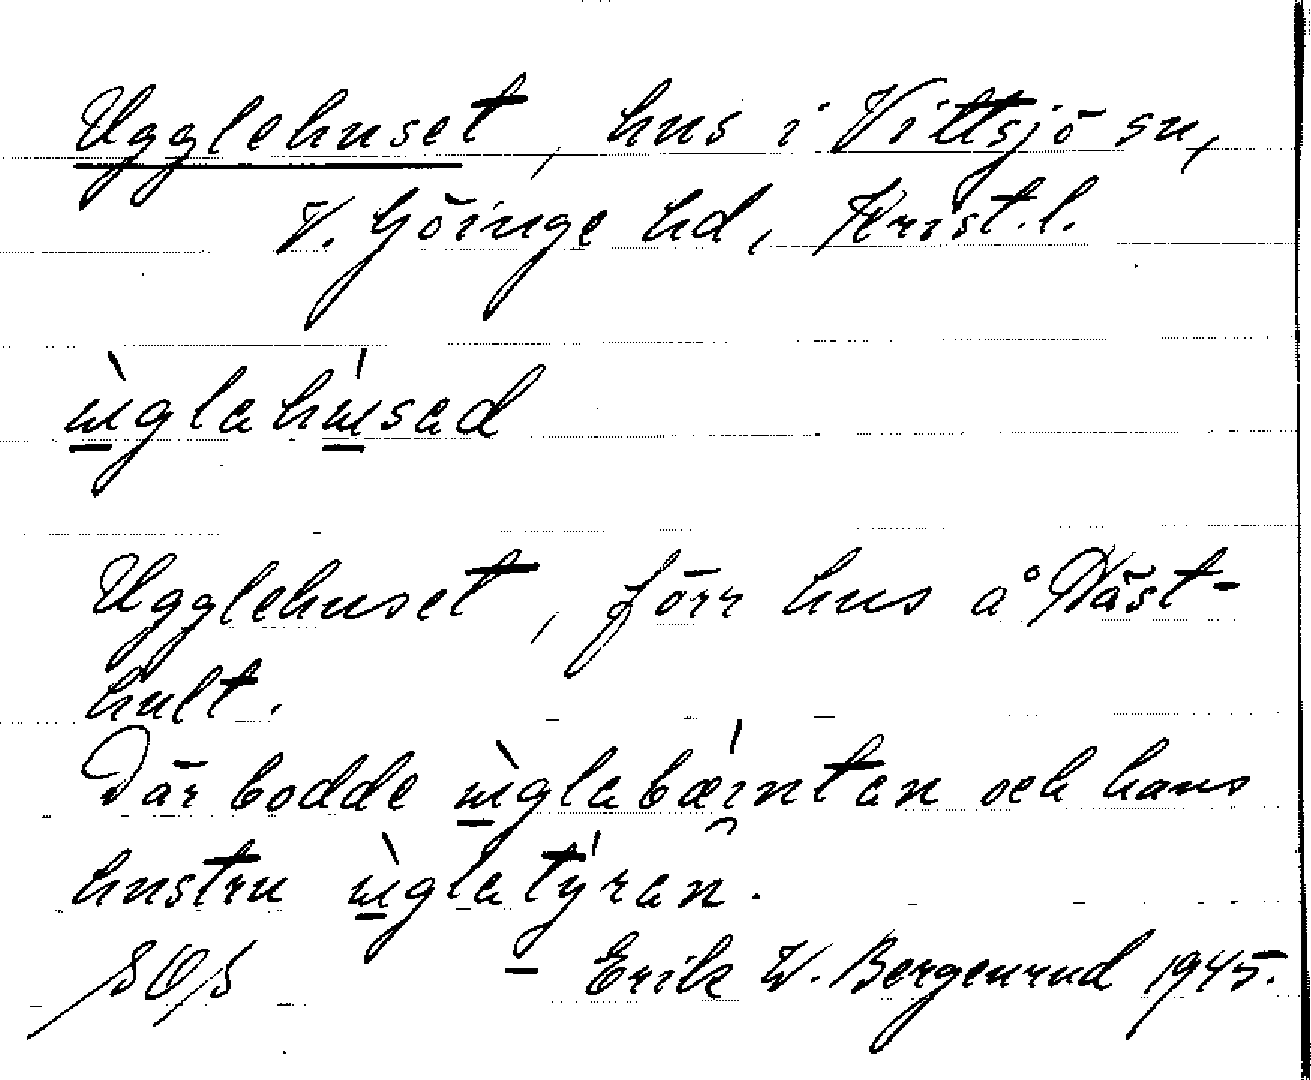 Ugglehuset, hus i Vittsjö sn,
V. Göinge hd, Krist.l.
ɯ̀glahɯ́sad
Ugglehuset, förr hus å Väst-
hult.
Där bodde ɯ̀glabæíntan och hans
hustru ɯ̀glatýran.
SOS Erik W. Bergenrud 1945.